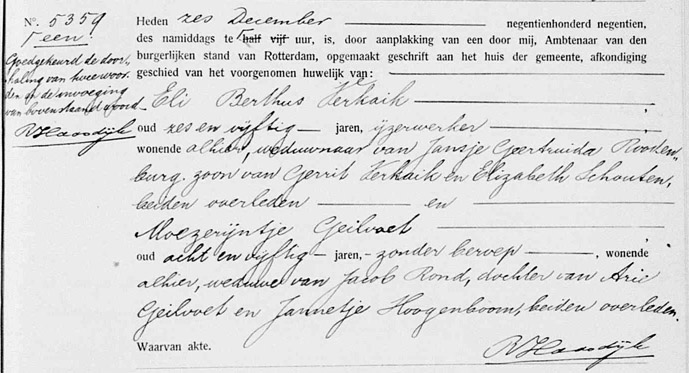 No. 5359
Γ een!
Goedgekeurd de door-
haling van twee woor-
den en de invoeging
van bovenstaand woord
RHaasdijk
Heden zes December negentienhonderd negentien,
des namiddags te Γ half vijf uur, is, door aanplakking van een door mij, Ambtenaar van den
burgerlijken stand van Rotterdam, opgemaakt geschrift aan het huis der gemeente, afkondiging
geschied van het voorgenomen huwelijk van:
Eli Berthus Verkaik
oud zes en vijftig jaren, ijzerwerker
wonende alhier, weduwnaar van Jansje Geertruida Rooden-
burg, zoon van Gerrit Verkaik en Elizabeth Schouten,
beiden overleden en
Moezerijntje Geilvoet
oud acht en vijftig jaren, zonder beroep, wonende
alhier, weduwe van Jacob Rond, dochter van Arie
Geilvoet en Jannetje Hoogenboom, beiden overleden.
Waarvan akte.
RHaasdijk